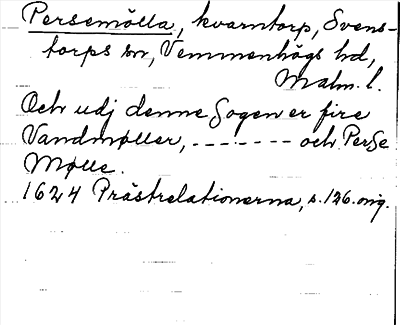 Persemölla, kvarntorp, Svens-
torps sn, Vemmenhögs hd,
Malm. l.
Och udj denne Sogen er fire
Vandmøller, - - - - - - - och PerSe
Mølle.
1624 Prästrelationerna, s. 126. orig.